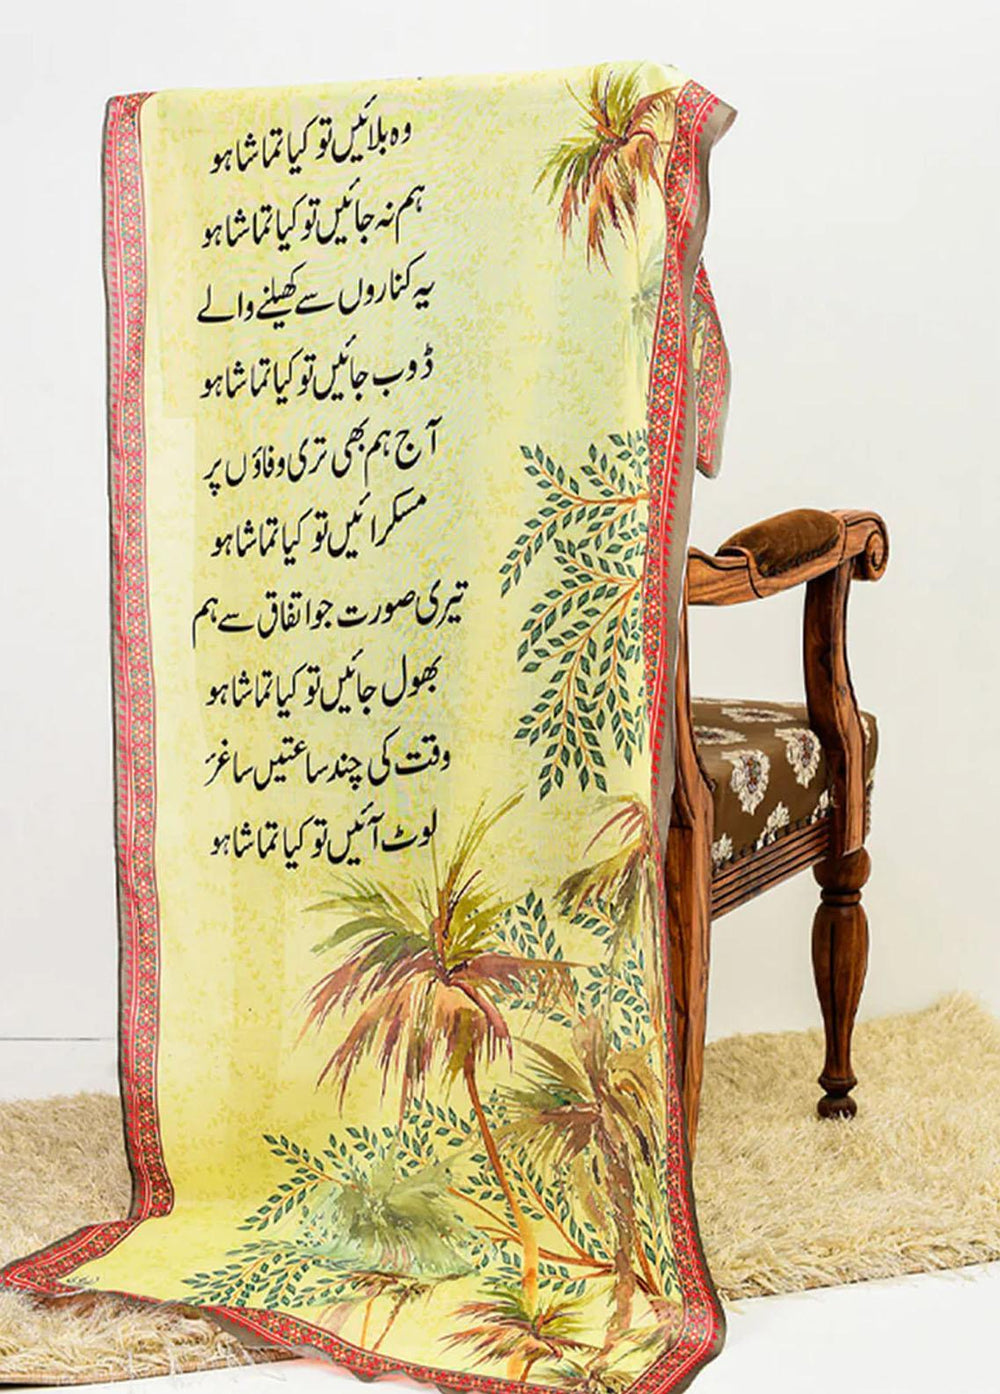 وہ بلائیں تو کیا تماشا ہو
ہم نہ جائیں تو کیا تماشا ہو
یہ کناروں سے کھیلنے والے
ڈوب جائیں تو کیا تماشا ہو
آج ہم بھی تری وفاؤں پر
مسکرائیں تو کیا تماشا ہو
تیری صورت جو اتفاق سے ہم
بھول جائیں تو کیا تماشا ہو
وقت کی چند ساعتیں ساغرؔ
لوٹ آئیں تو کیا تماشا ہو